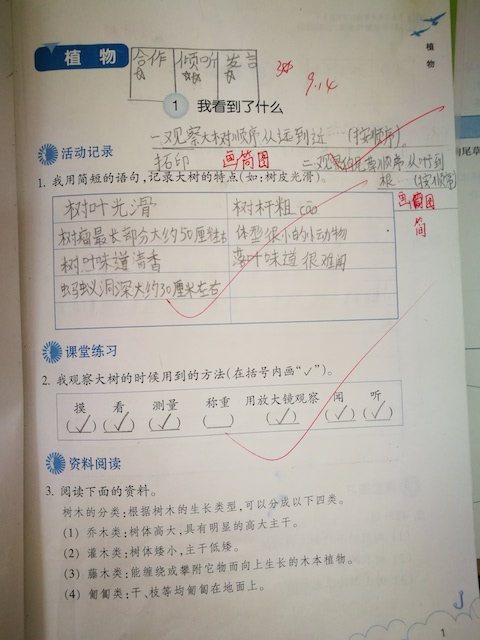 植物
合作 倾听 发言
3个
9.14
植物
1 我看到了什么
一.观察大树顺序从远到近…(按顺序)。
活动记录
拓印 画简图 二.观察狗尾草顺序从叶到
根…(按顺序)
1. 我用简短的语句,记录大树的特点(如:树皮光滑)。
画简图
简
树叶光滑 树杆粗cāo
树瘤最长部分大约50厘米左右 体型很小的小动物
树叶味道清香 落叶味道很难闻
蚂蚁洞深大约30厘米左右
课堂练习
2. 我观察大树的时候用到的方法(在括号内画“✓”)。
摸 看 测量 称重 用放大镜观察 闻 听
(✓) (✓) (✓) ( ) (✓) (✓) (✓)
资料阅读
3. 阅读下面的资料。
树木的分类:根据树木的生长类型,可以分成以下四类。
(1) 乔木类:树体高大,具有明显的高大主干。
(2) 灌木类:树体矮小,主干低矮。
(3) 藤木类:能缠绕或攀附它物而向上生长的木本植物。
(4) 匍匐类:干、枝等均匍匐在地面上。
1